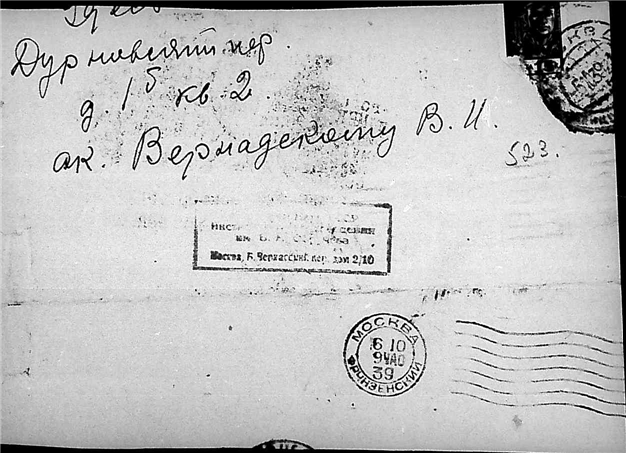 Здесь
Дурновский пер.
д. 1б кв 2.
ак. Вернадскому В. И.
523.
им. В.
Москва, Б. Черкасский. пер. дом 2/10
МОСКВА
6 10
39
ФРУНЗЕНСКИЙ